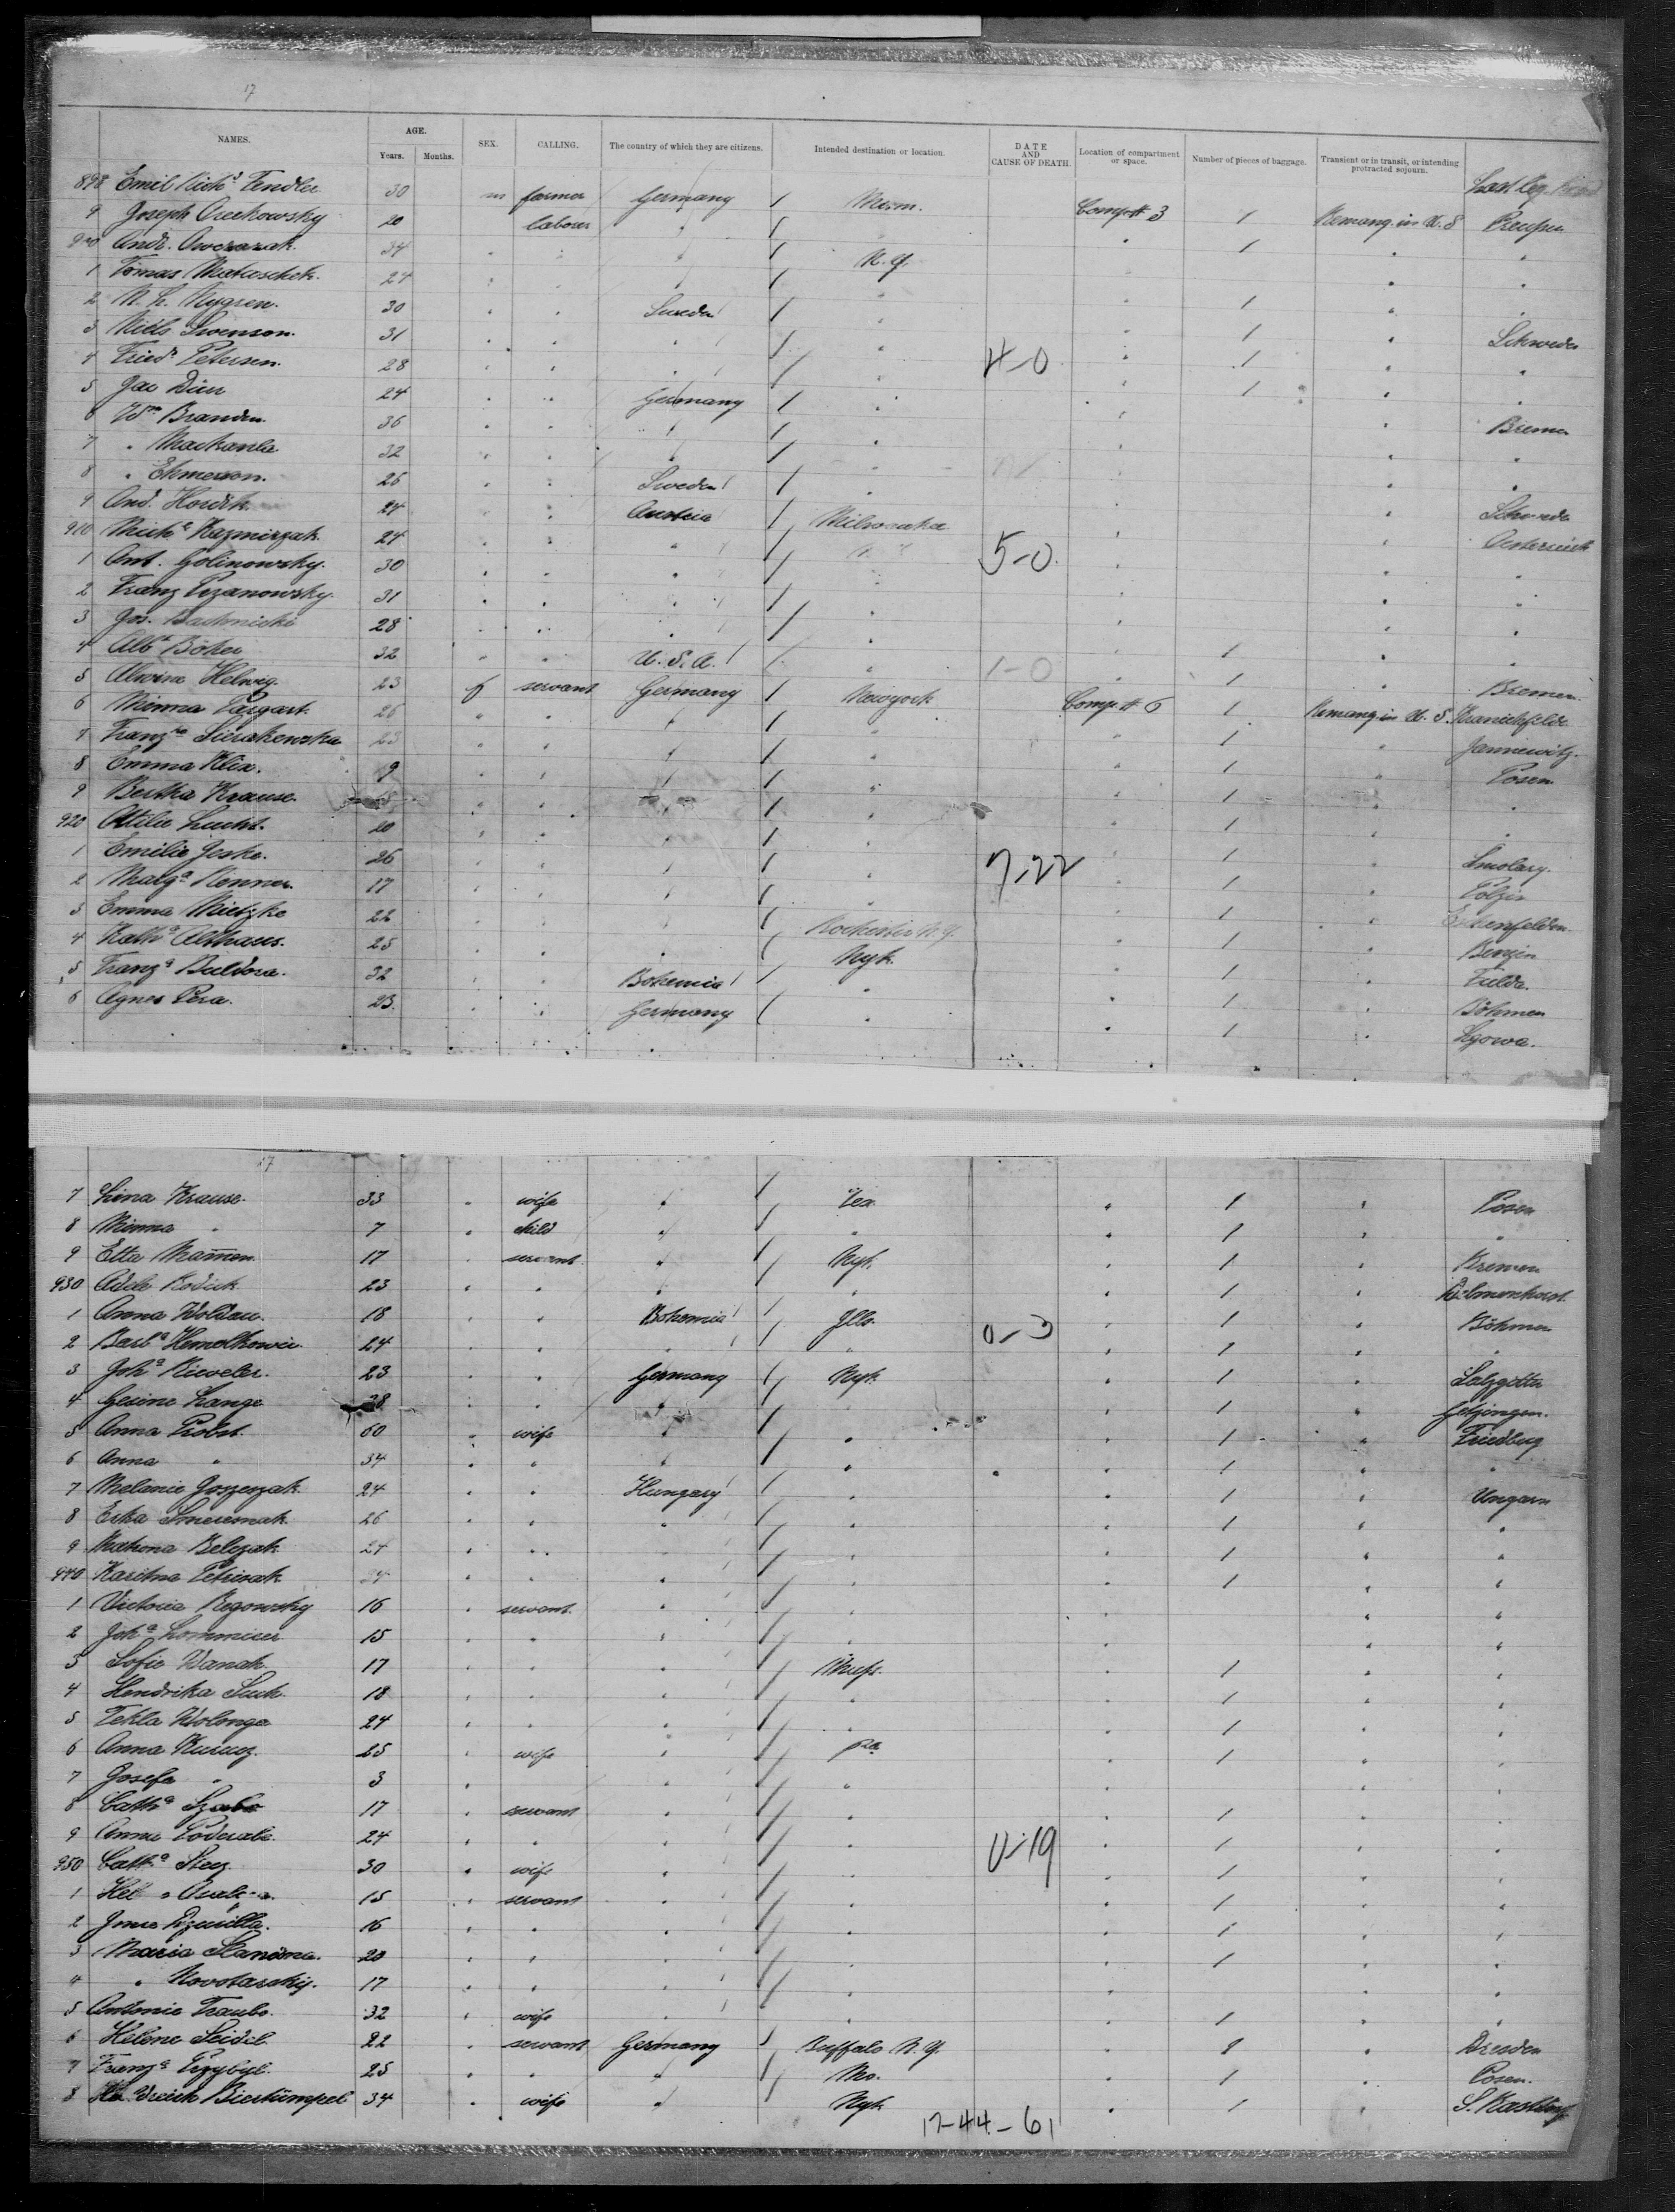 17
NAMES. AGE. Years. Months. SEX. CALLING. The country of which they are citizens. Intended destination or location. DATE AND CAUSE OF DEATH. Location of compartment or space. Number of pieces of baggage. Transient or in transit, or intending protracted sojourn.
898 Emil Rich^d Tendler 30 m farmer Germany / Comp # 3 1 Remang. in U.S
9 Joseph 20 laborer " / " Preußen
900 Andr. Owczarzak 34 " " " / N. Y. " 1 " "
1 Tomas Matuschek. 24 " " " / " " "
2 N. L. Nygren. 30 " " Sweden / " " 1 "
3 Niels Swenson. 31 " " " / " " 1 " Schweden
4 Fried^r Petersen. 28 " " " / " 4-0 " 1 " "
5 Jac Dürr 24 " " Germany / " " 1 " "
6 W^m Branden 36 " " " / " " " Bremen
7 " 32 " " " / " " " "
8 " 26 " " Sweden / " " "
9 And. Hordik 24 " " Austria / Milwaukee Schweden
910 Mich^a Kazmirzak 24 " " " / N. Y. 5-0 " " Oesterreich
1 Ant. Golinowsky. 30 " " " / " " "
2 Franz Pizanowsky. 31 " " " / " " " "
3 Jos. Bachnicki 28 " " " / " " "
4 Alb^t Böker 32 " " U. S. A. / " 1-0 " 1 " "
5 Alwine Helwig. 23 f servant Germany / Newyork Comp # 6 1 " Bremen.
6 Minna Pargart. 26 " " " / " 1 Remang in U. S. Kranichfeld
7 Franz^ka Sierakowska 23 " " " / " " 1 " Jannewitz.
8 Emma Klix. 9 " " " / " " 1 " Posen
9 Bertha Krause. " " " / " " 1 " "
920 Ottilie Lucht. 20 " " " / " " 1 " "
1 Emilie Jeske. 26 " " " / " 7-22 " 1 " Smolary.
2 Marg^a Renner. 17 " " " / " " 1 " Polzin
3 Emma Mietzke 22 " " " / Rochester N.Y. " 1 " Eckenfelden
4 Kath^a Althaus. 25 " " " / Nyk. " 1 "
5 Franz^a Buldora. 32 " " Bohemia / " " 1 " Fulda.
6 Agnes Pera. 23. " " Germany / " " 1 " Böhmen
" 1 "
17
7 Lina Krause. 33 " wife " / Tex " 1 " Posen
8 Minna " 7 " child " / " " 1 " "
9 Etta Mammen. 17 " servant " / Nyk. " 1 " Bremen
930 Adele 23 " " " / " " 1 " Delmenhorst
1 Anna Woldau. 18 " " Bohemia / Ills. 0-3 " 1 " Böhmen
2 Barb^a 24 " " " / " " 1 " "
3 Joh^a 23 " " Germany / Nyk. " 1 " Salzgitter
4 Gesine Lange 28 " " " / " " 1 "
5 Anna Probst. 60 " wife " / " " 1 " Friedberg
6 Anna " 34 " " " / " " 1 " "
7 Melanie 24 " " Hungary / " " 1 " Ungarn
8 Erka 26 " " " / " " 1 " "
9 Matrona Belezak 24 " " " / " " 1 " "
940 Karitna Petrisak 24 " " " / " " 1 " "
1 Victoria 16 " servant. " / " " " "
2 Joh^a 15 " " " / " " " "
3 Sofie Wanak 17 " " " / " 1 " "
4 Hendrika Suck. 18 " " " / " " 1 " "
5 Tekla Wolonga 24 " " " / " " 1 " "
6 Anna 25 " wife " / Pa " 1 " "
7 Josefa " 3 " " / " " " "
8 Cath^a Szabo 17 " servant " / " " 1 " "
9 Anna 24 " " " / " 0-19 " 1 " "
950 Cath^a 30 " wife " / " " 1 " "
1 15 " servant " / " " 1 " "
2 16 " " " / " " 1 " "
3 Maria 20 " " " / " " 1 " "
4 " Novotarskij. 17 " " " / " " " "
5 Antonie 32 " wife " / " " 1 " "
6 Helene Seidel 22 " servant Germany / Buffalo N. Y. " 2 " Dresden
7 Franz^a Przybyl. 25 " " " / Mo. " 1 " Posen.
8 34 " wife " / Nyk " 1 "
17-44-61